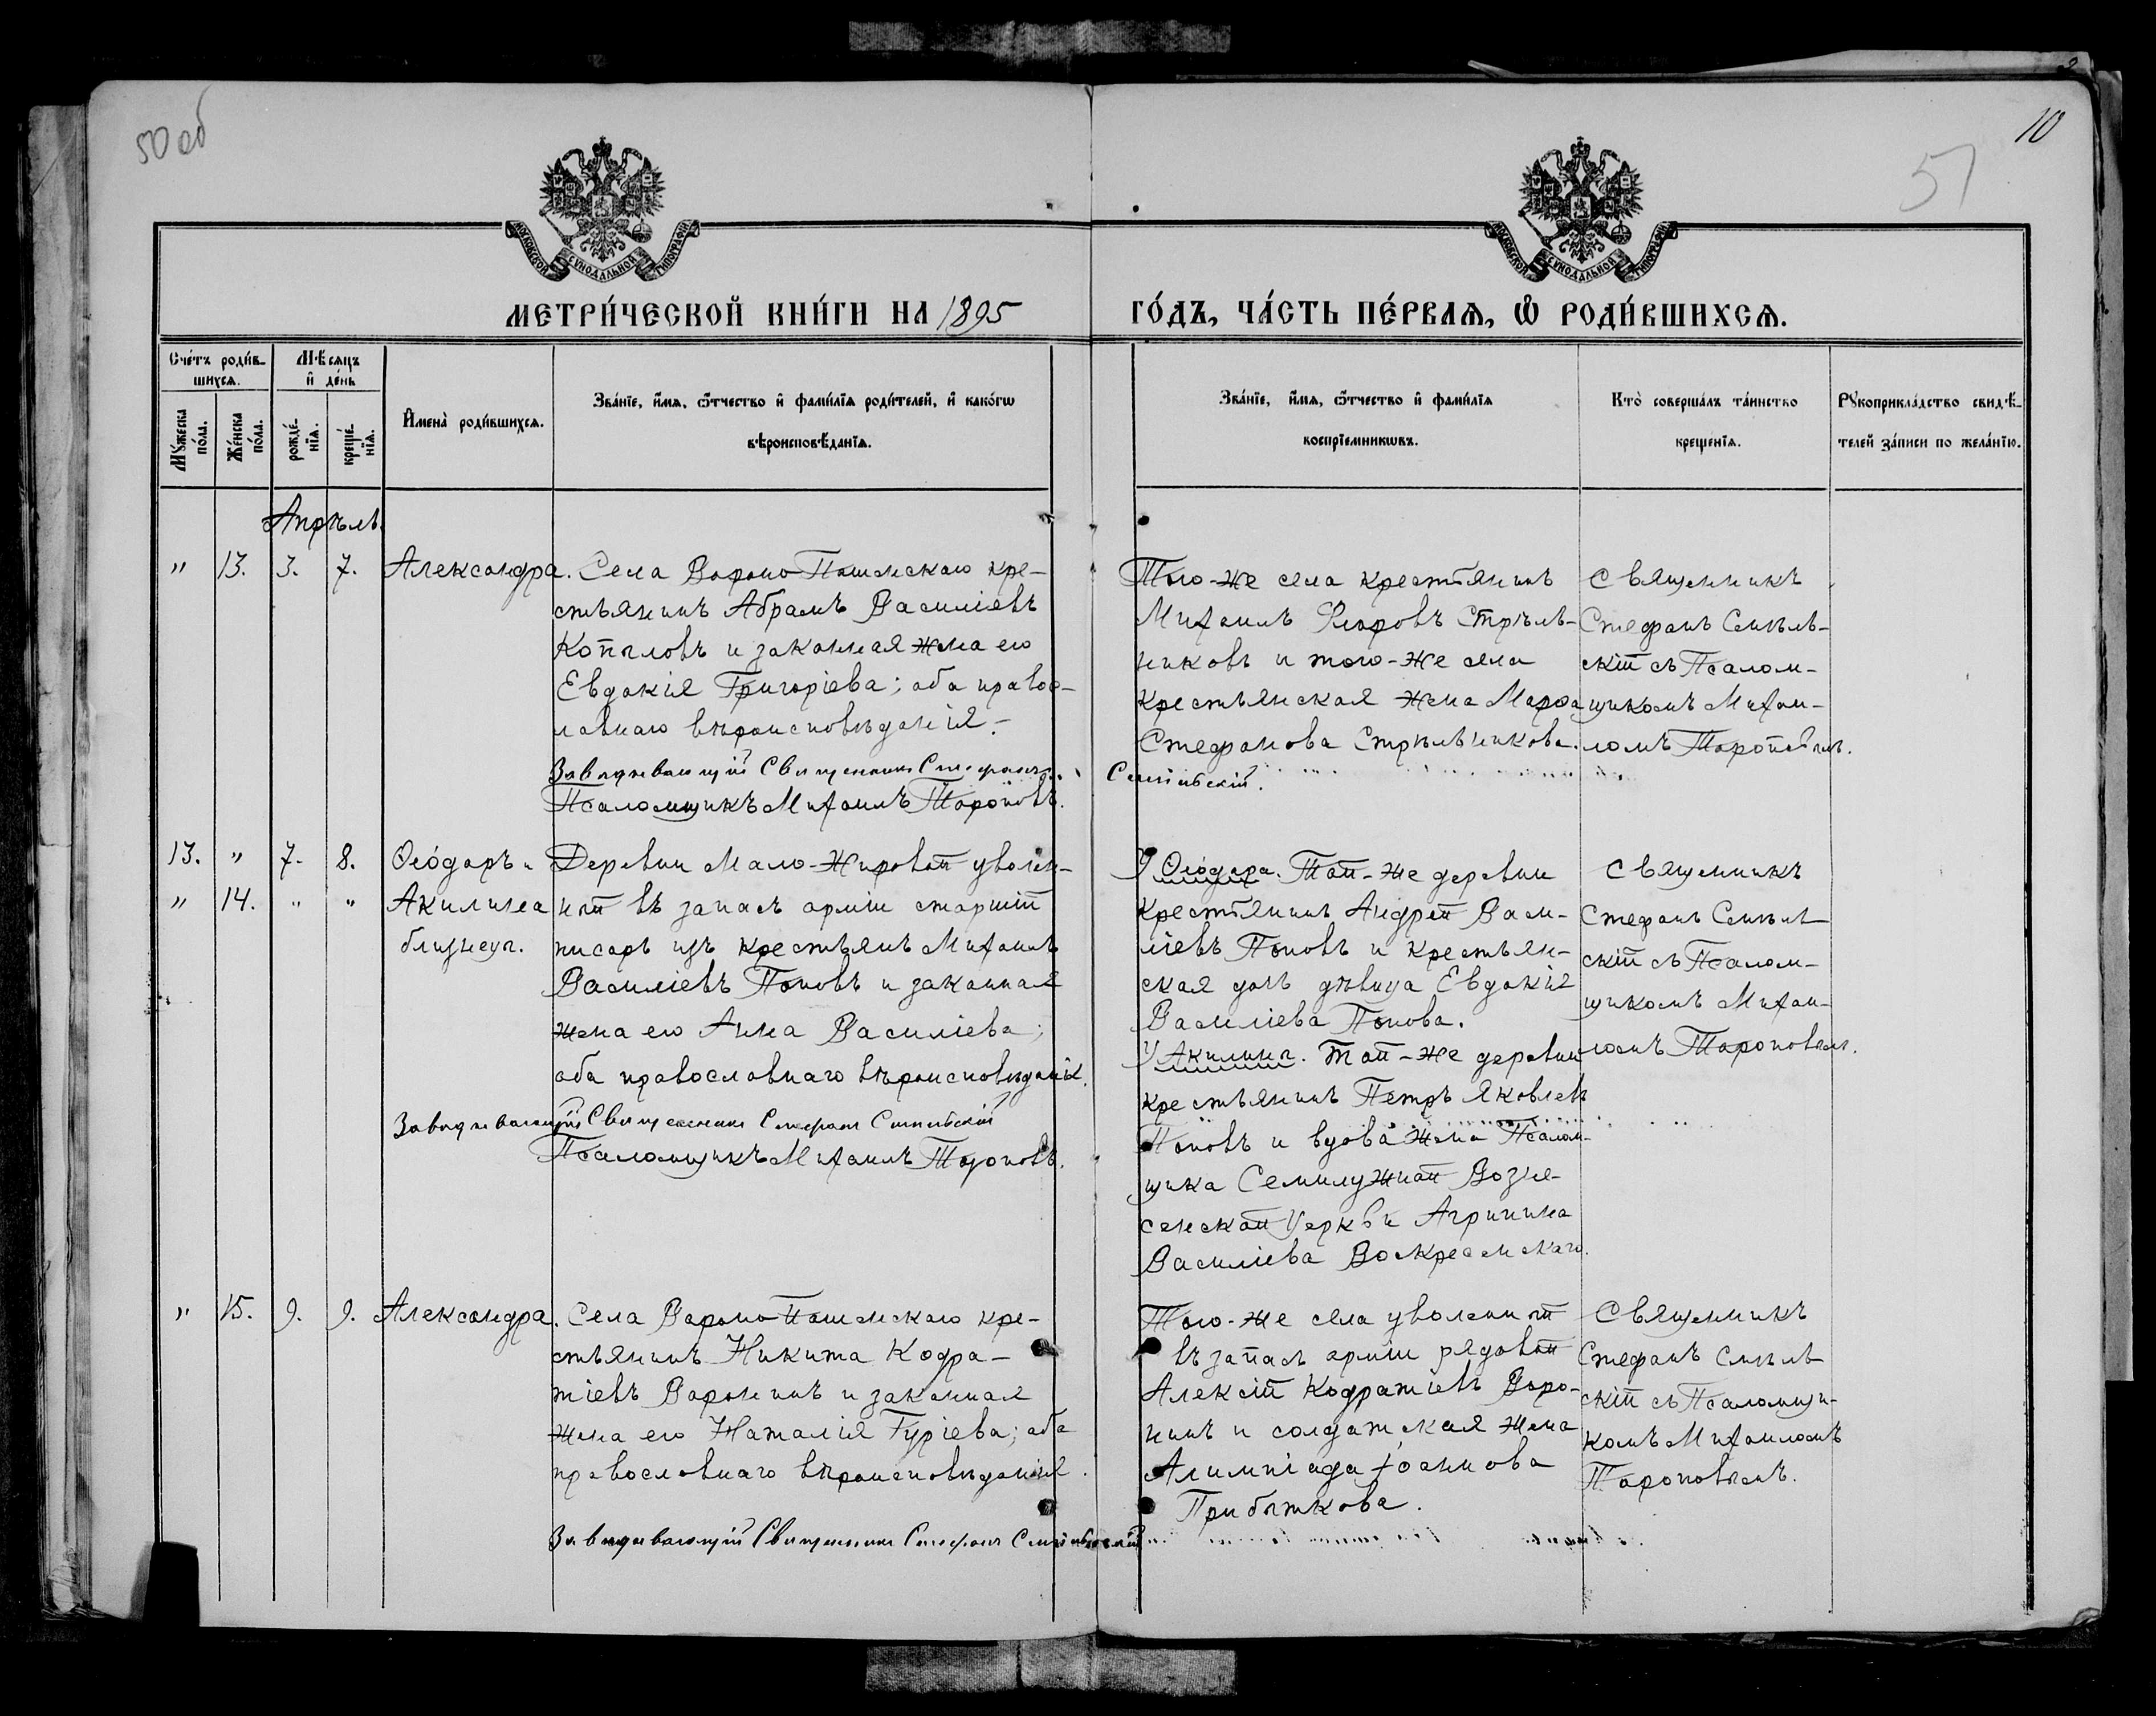 50 об
10
51
МОСКОВСКОЙ СѴНОДАЛЬНОЙ ТИПОГРАФІИ
МОСКОВСКОЙ СѴНОДАЛЬНОЙ ТИПОГРАФІИ
МЕТРИ́ЧЕСКОЙ КНИ́ГИ НА 1895
ГО́ДЪ, ЧА́СТЬ ПЕ́РВАѦ, Ѽ РОДИ́ВШИХСѦ.
Сче́тъ роди́в-
шихсѧ.
Мѣ́сѧцъ
и҆ де́нь
Мꙋ́жеска
по́ла.
Же́нска
по́ла.
рожде́-
нїѧ.
креще́-
нїѧ.
И҆мена̀ роди́вшихсѧ.
Зва́нїе, и҆́мѧ, ѻ҆́тчество и҆ фами́лїѧ роди́телей, и҆ како́гѡ
вѣроисповѣ́данїѧ.
Зва́нїе, и҆́мѧ, ѻ҆́тчество и҆ фами́лїѧ
воспрїе́мникѡвъ.
Кто̀ соверша́лъ та́инство
креще́нїѧ.
Рꙋкоприкла́дство свидѣ́-
телей за́писи по жела́нїю.
Апрѣль.
" 13. 3. 7. Александра.
Села Вороно-Пашенскаго кре-
стьянинъ Абрамъ Василіевъ
Копыловъ и законная жена его
Евдокія Григоріева; оба правос-
лавнаго вѣроисповѣданія.-
Завѣдывающій Священникъ Стефанъ
Псаломщикъ Михаилъ Тороповъ.
Того-же села крестьянинъ
Михаилъ Флоровъ Стрѣль-
никовъ и того-же села
крестьянская жена Марѳа
Стефанова Стрѣльникова.
Синѣльскій.
Священникъ
Стефанъ Синѣль-
скій съ Псалом-
щикомъ Михаи-
ломъ Тороповымъ.
13. " 7. 8. Ѳео́доръ и
" 14. " " Акилина
близнецы.
Деревни Мало-Жировой уволен-
ный въ запасъ арміи старшій
писарь изъ крестьянъ Михаилъ
Василіевъ Поповъ и законная
жена его Анна Василіева;
оба православнаго вѣроисповѣданія.
Завѣдывающій Священникъ Стефанъ Синѣльскій
Псаломщикъ Михаилъ Тороповъ.
У Ѳео́дора. Той-же деревни
крестьянинъ Андрей Васи-
ліевъ Поповъ и крестьян-
ская дочь дѣвица Евдокія
Василіева Попова.
У Акилины. Той-же деревни
крестьянинъ Петръ Яковлевъ
Поповъ и вдова жена Псалом-
щика Семилужной Возне-
сенской Церкви Агрипина
Василіева Воскресенскаго.
Священникъ
Стефанъ Синѣль
скій съ Псалом-
щикомъ Михаи-
ломъ Тороповымъ.
" 15. 9. 9. Александра.
Села Вороно-Пашенскаго кре-
стьянинъ Никита Кодра-
тіевъ Воронинъ и законная
жена его Наталія Гуріева; оба
православнаго вѣроисповѣданія.
Завѣдывающій Священникъ Стефанъ Синѣльскій
Того-же села уволенный
въ запасъ арміи рядовой
Алексій Кодратіевъ Воро-
нинъ и солдатская жена
Алимпіада Іоаннова
Прибыткова.
Священникъ
Стефанъ Синѣль
скій съ Псаломщи-
комъ Михаиломъ
Тороповымъ.